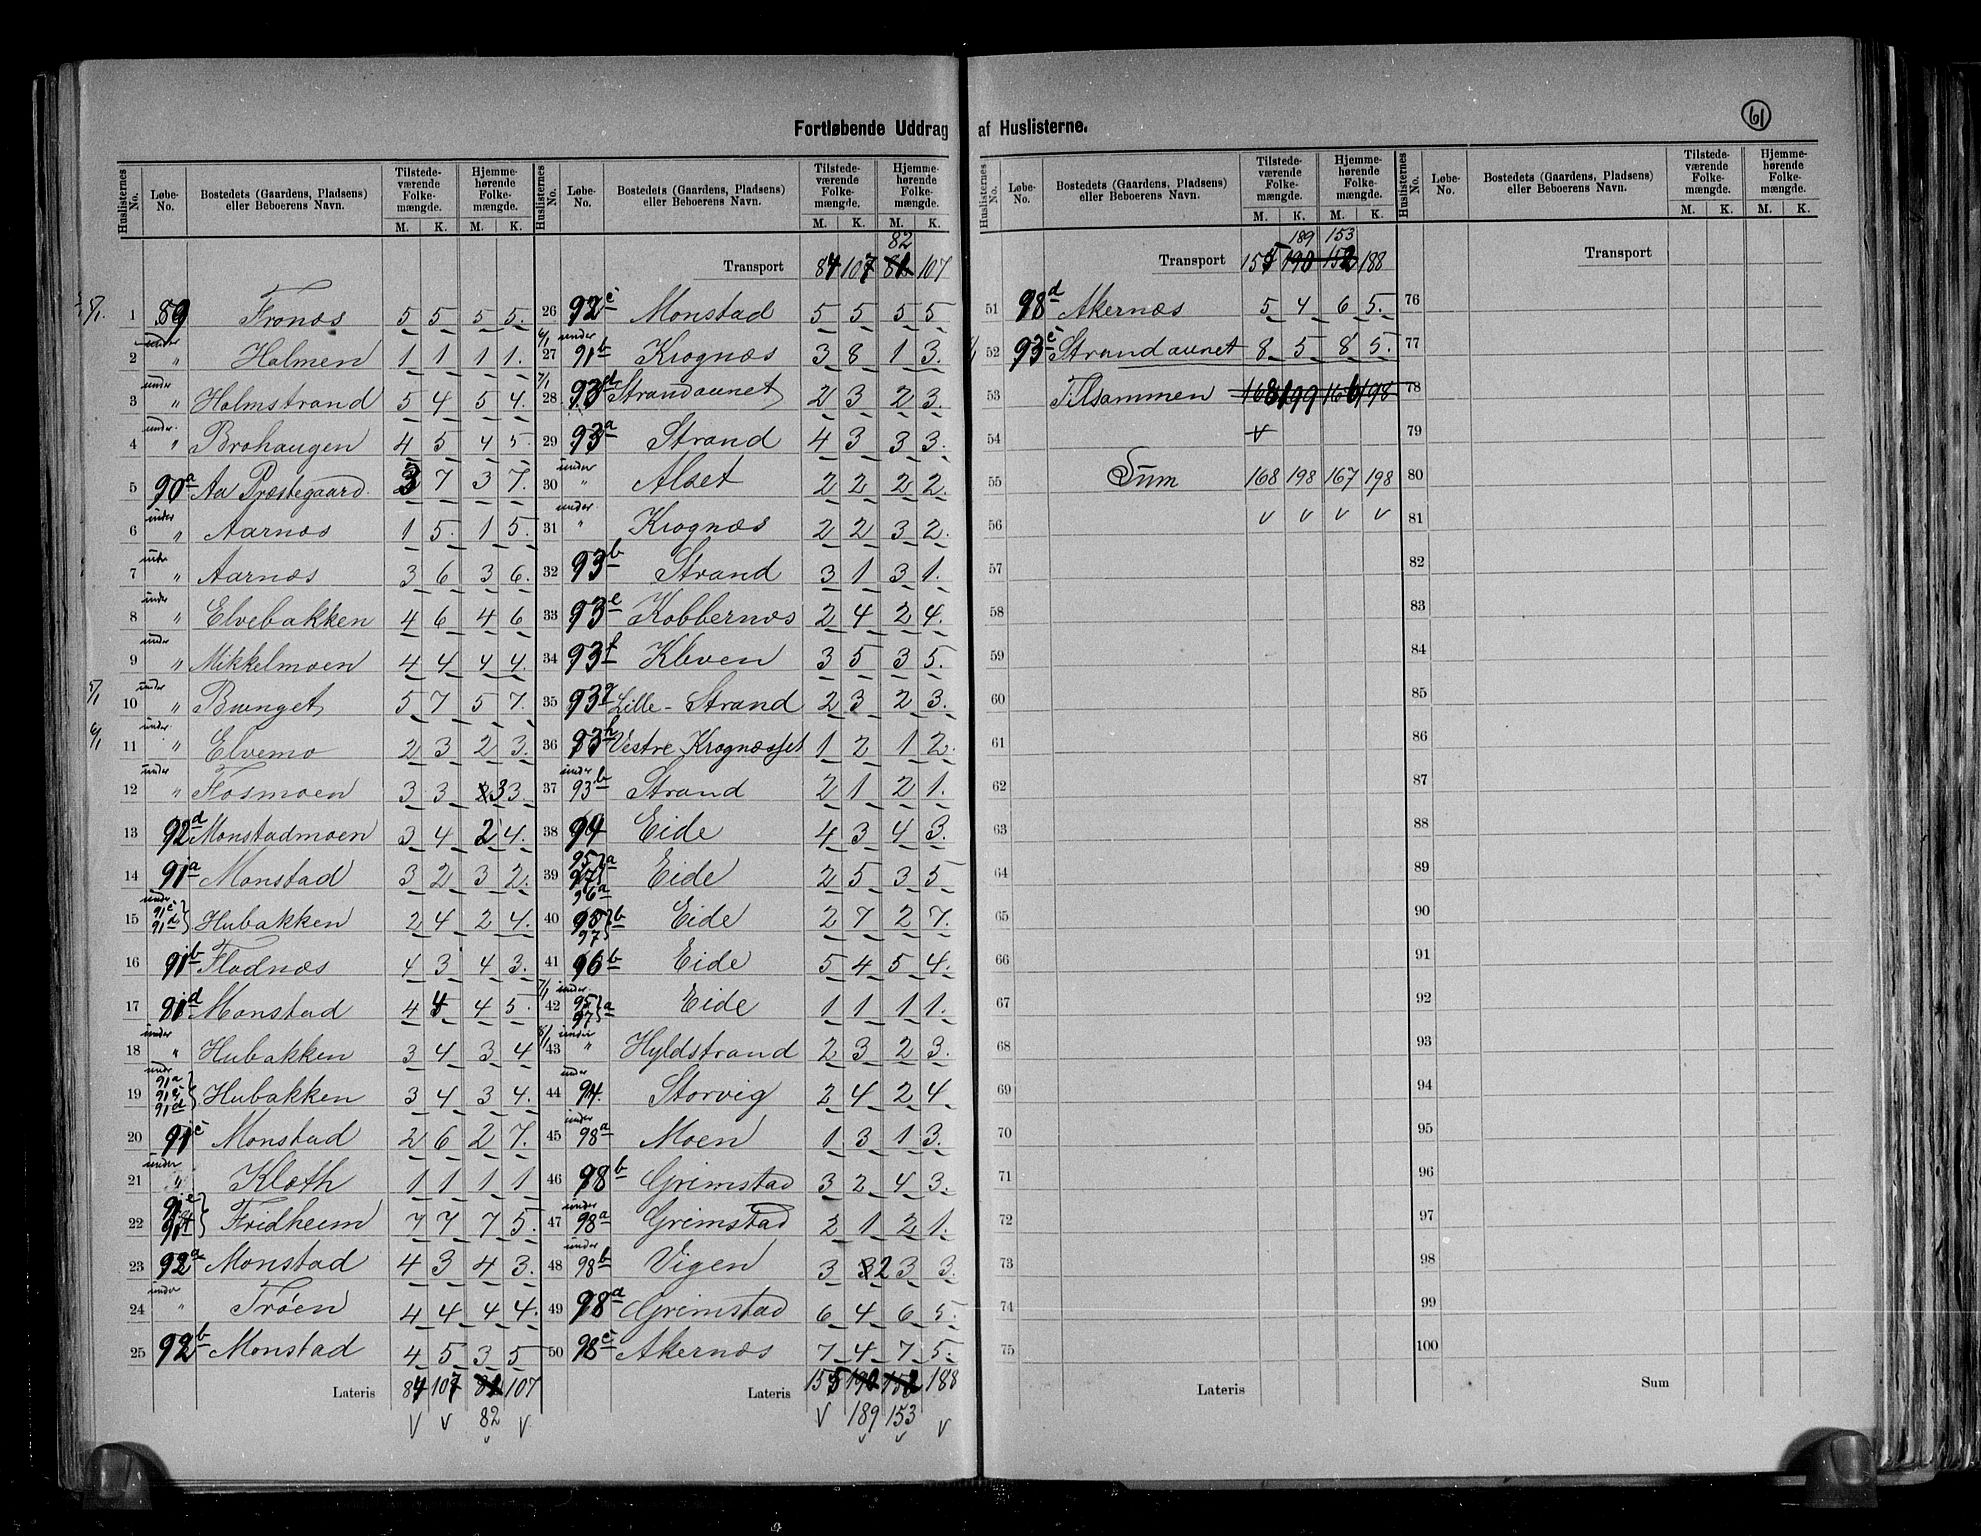 61
Fortløbende Uddrag af Huslisterne.
Huslisternes No. Løbe-No. Bostedets (Gaardens, Pladsens) eller Beboerens Navn. Tilstedeværende Folkemængde. M. K. Hjemmehørende Folkemængde. M. K.
5/1. 1 89 Fronæs 5 5 5 5.
2 under " Holmen 1 1 1 1.
3 under " Holmstrand 5 4 5 4.
4 under " Brohaugen 4 5 4 5.
5 90a Aa Præstegaard. 3 7 3 7.
6 under " Aarnæs 1 5. 1 5.
7 under " Aarnæs 3 6 3 6.
8 under " Elvebakken 4 6 4 6
9 under " Mikkelmoen 4 4 4 4.
5/1 10 under " Bunget 5 7 5 7.
6/1 11 under " Elvemo 2 3 2 3.
12 under " Fosmoen 3 3 2 3 3.
13 92d Monstadmoen 3 4 2 4.
14 91a Monstad 3 2 3 2.
15 under 91c 91d } Hubakken 2 4 2 4.
16 91b Flodnæs 4 3 4 3.
17 91d Monstad 4 4 4 5.
18 under " Hubakken 3 4 3 4
19 under 91a 91c 91d } Hubakken 3 4 3 4.
20 91c Monstad 2 6 2 7.
21 under " Kloth 1 1 1 1
22 91e 91f } Fridheim 7 7 7 5.
23 92a Monstad 4 3 4 3.
24 under " Trøen 4 4 4 4.
25 92b Monstad 4 5 3 5
Lateris 84 107 81 107
82
Huslisternes No. Løbe-No. Bostedets (Gaardens, Pladsens) eller Beboerens Navn. Tilstedeværende Folkemængde. M. K. Hjemmehørende Folkemængde. M. K.
82
Transport 84 107 81 107
26 92c Monstad 5 5 5 5
6/1 27 under 91b Krognæs 3 8 1 3.
7/1 28 93d Strandaunet 2 3 2 3.
29 93a Strand 4 3 3 3.
30 under " Alset 2 2 2 2.
31 under " Krognæs 2 2 3 2.
32 93b Strand 3 1 3 1.
33 93e Kobbernæs 2 4 2 4.
34 93f Kleven 3 5 3 5.
35 93g Lille-Strand 2 3 2 3.
36 93h Vestre Krognæsset 1 2 1 2.
37 under 93b Strand 2 1 2 1.
38 94 Eide 4 3 4 3.
39 95 97 } a 96a Eide 2 5 3 5
40 95 97 } b Eide 2 7 2 7.
41 96b Eide 5 4 5 4.
7/1 42 under 95 97 } a Eide 1 1 1 1.
8/1 43 under " Hyldstrand 2 3 2 3.
44 under 94. Storvig 2 4 2 4
45 under 98a Moen 1 3 1 3.
46 98b Grimstad 3 2 4 3.
47 under 98a Grimstad 2 1 2 1.
48 under 98b Vigen 3 3 2 3 3.
49 98a Grimstad 6 4 6 5.
50 98c Akernæs 7 4 7 5.
Lateris 155 190 152 188
189 153
Huslisternes No. Løbe-No. Bostedets (Gaardens, Pladsens) eller Beboerens Navn. Tilstedeværende Folkemængde. M. K. Hjemmehørende Folkemængde. M. K.
189 153
Transport 155 190 152 188
51 98d Akernæs 5 4 6 5.
52 93c Strandaunet 8 5 8 5.
53 Tilsammen 168 199 166 198
54
55 Sum 168 198 167 198
56
57
58
59
60
61
62
63
64
65
66
67
68
69
70
71
72
73
74
75
Lateris
Huslisternes No. Løbe-No. Bostedets (Gaardens, Pladsens) eller Beboerens Navn. Tilstedeværende Folkemængde. M. K. Hjemmehørende Folkemængde. M. K.
Transport
76
77
78
79
80
81
82
83
84
85
86
87
88
89
90
91
92
93
94
95
96
97
98
99
100
Sum